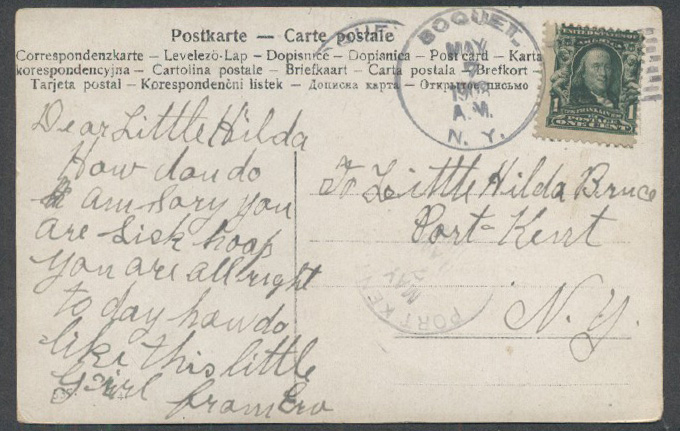 Postkarte — Carte postale
Correspondenzkarte – Levelező-Lap – Dopisnice – Dopisnica – Post card – Karta
korespondencyjna – Cartolina postale – Briefkaart – Carta postala – Brefkort –
Tarjeta postal – Korespondenční lístek – Дописна карта – Открытое письмо
BOQUET,
MAY
A.M.
N. Y.
UNITED STATES
1 1
FRANKLIN
POSTAGE
ONE CENT
Dear Little Hilda
How dou do
I am sory you
are sick hoap
you are all right
to day how do
like this little
girl from Era
To Little Hilda Bruce
Port-Kent
N.Y.
PORT KEN
MAY